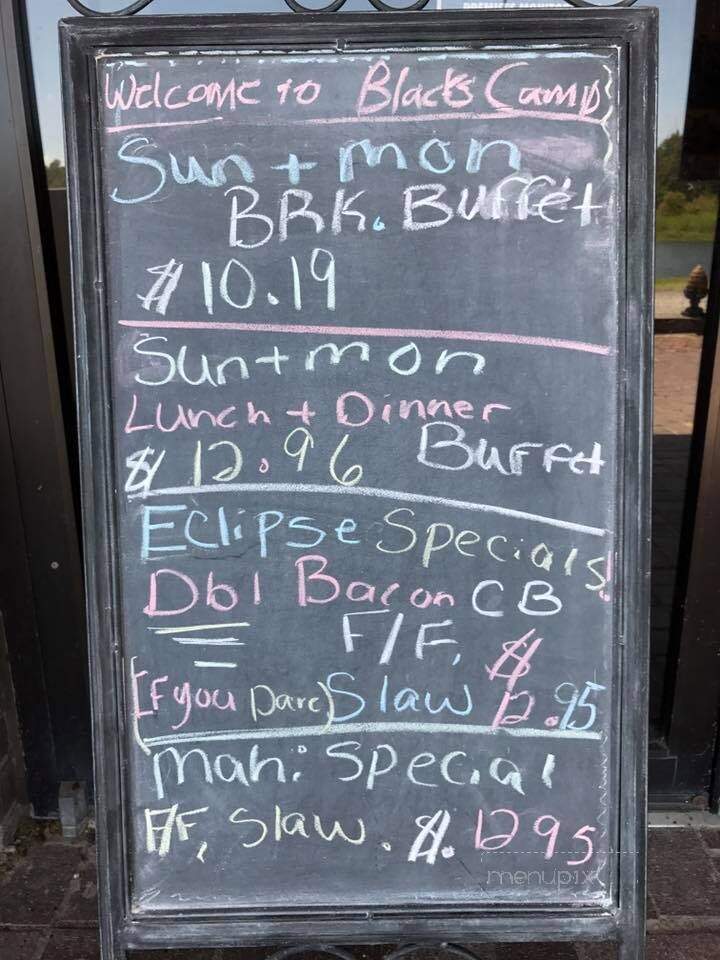 Welcome to Blacks Camp
Sun + mon
BRK. Buffet
$10.19
Sun + mon
Lunch + Dinner
$12.96 Buffet
Eclipse Specials!
Dbl Bacon CB
F/F, $
(If you Dare) Slaw 12.95
Mahi Special
F/F, Slaw. $. 12 95
menupix